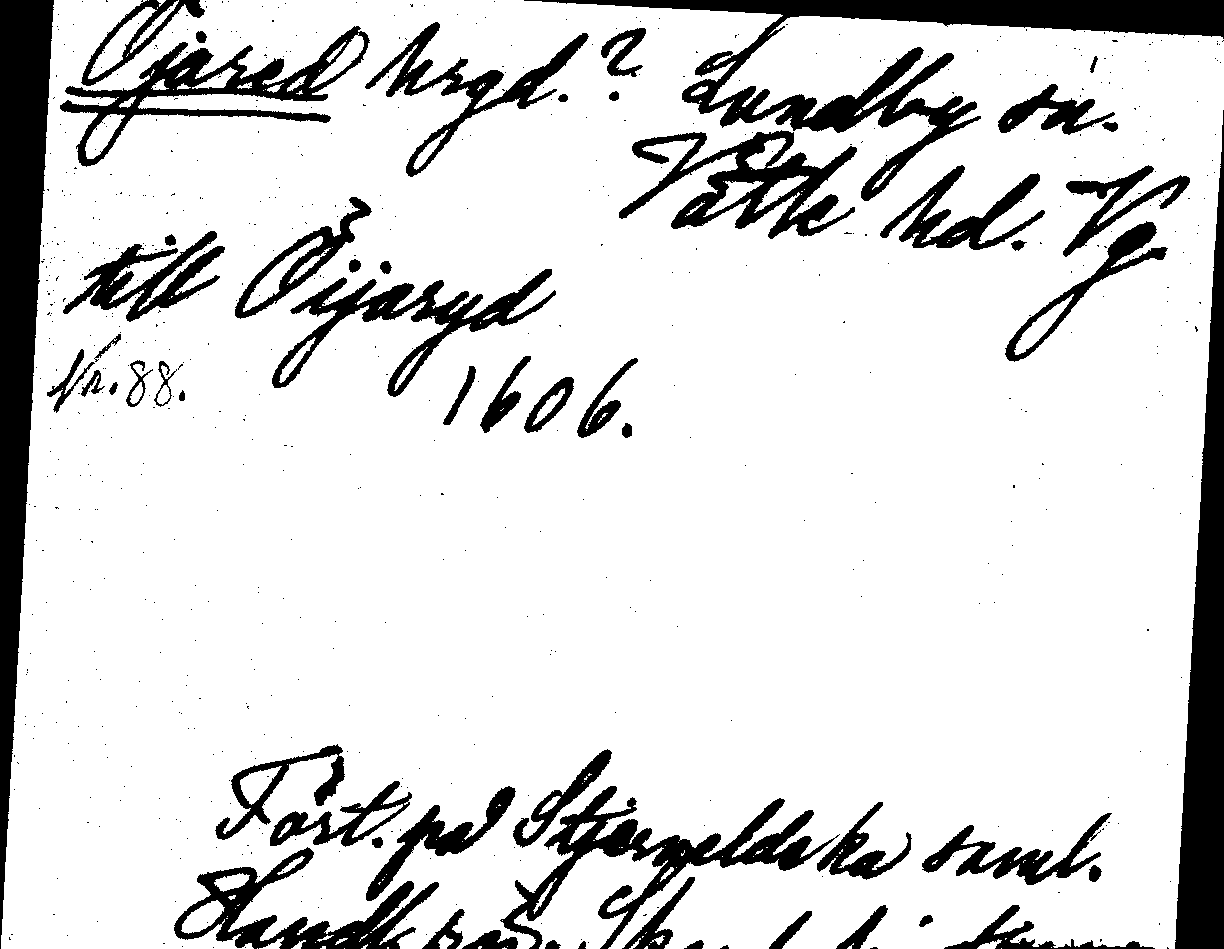 Öjared hrgd.? Lundby sn.
Vätle hd. Vg.
till Öijaryd
Nr. 88.
1606.
Fört. på Stjerneldska saml.
Handl. rör. Skand.